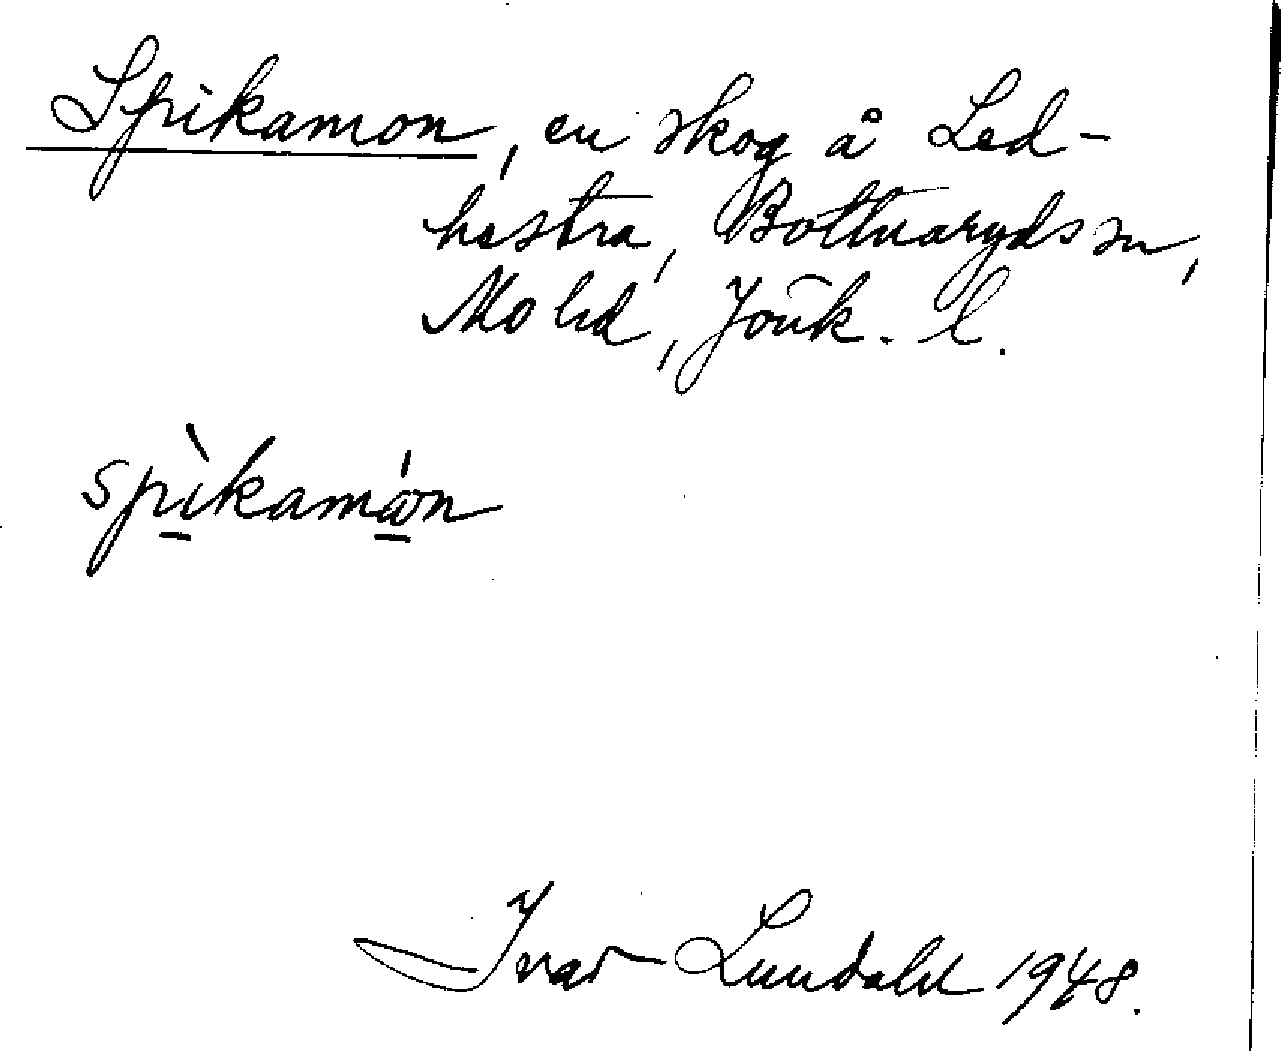 Spikamon, en skog å Led-
hestra, Bottnaryds sn,
Mo hd, Jönk. l.
spìkamón
Ivar Lundahl 1948.